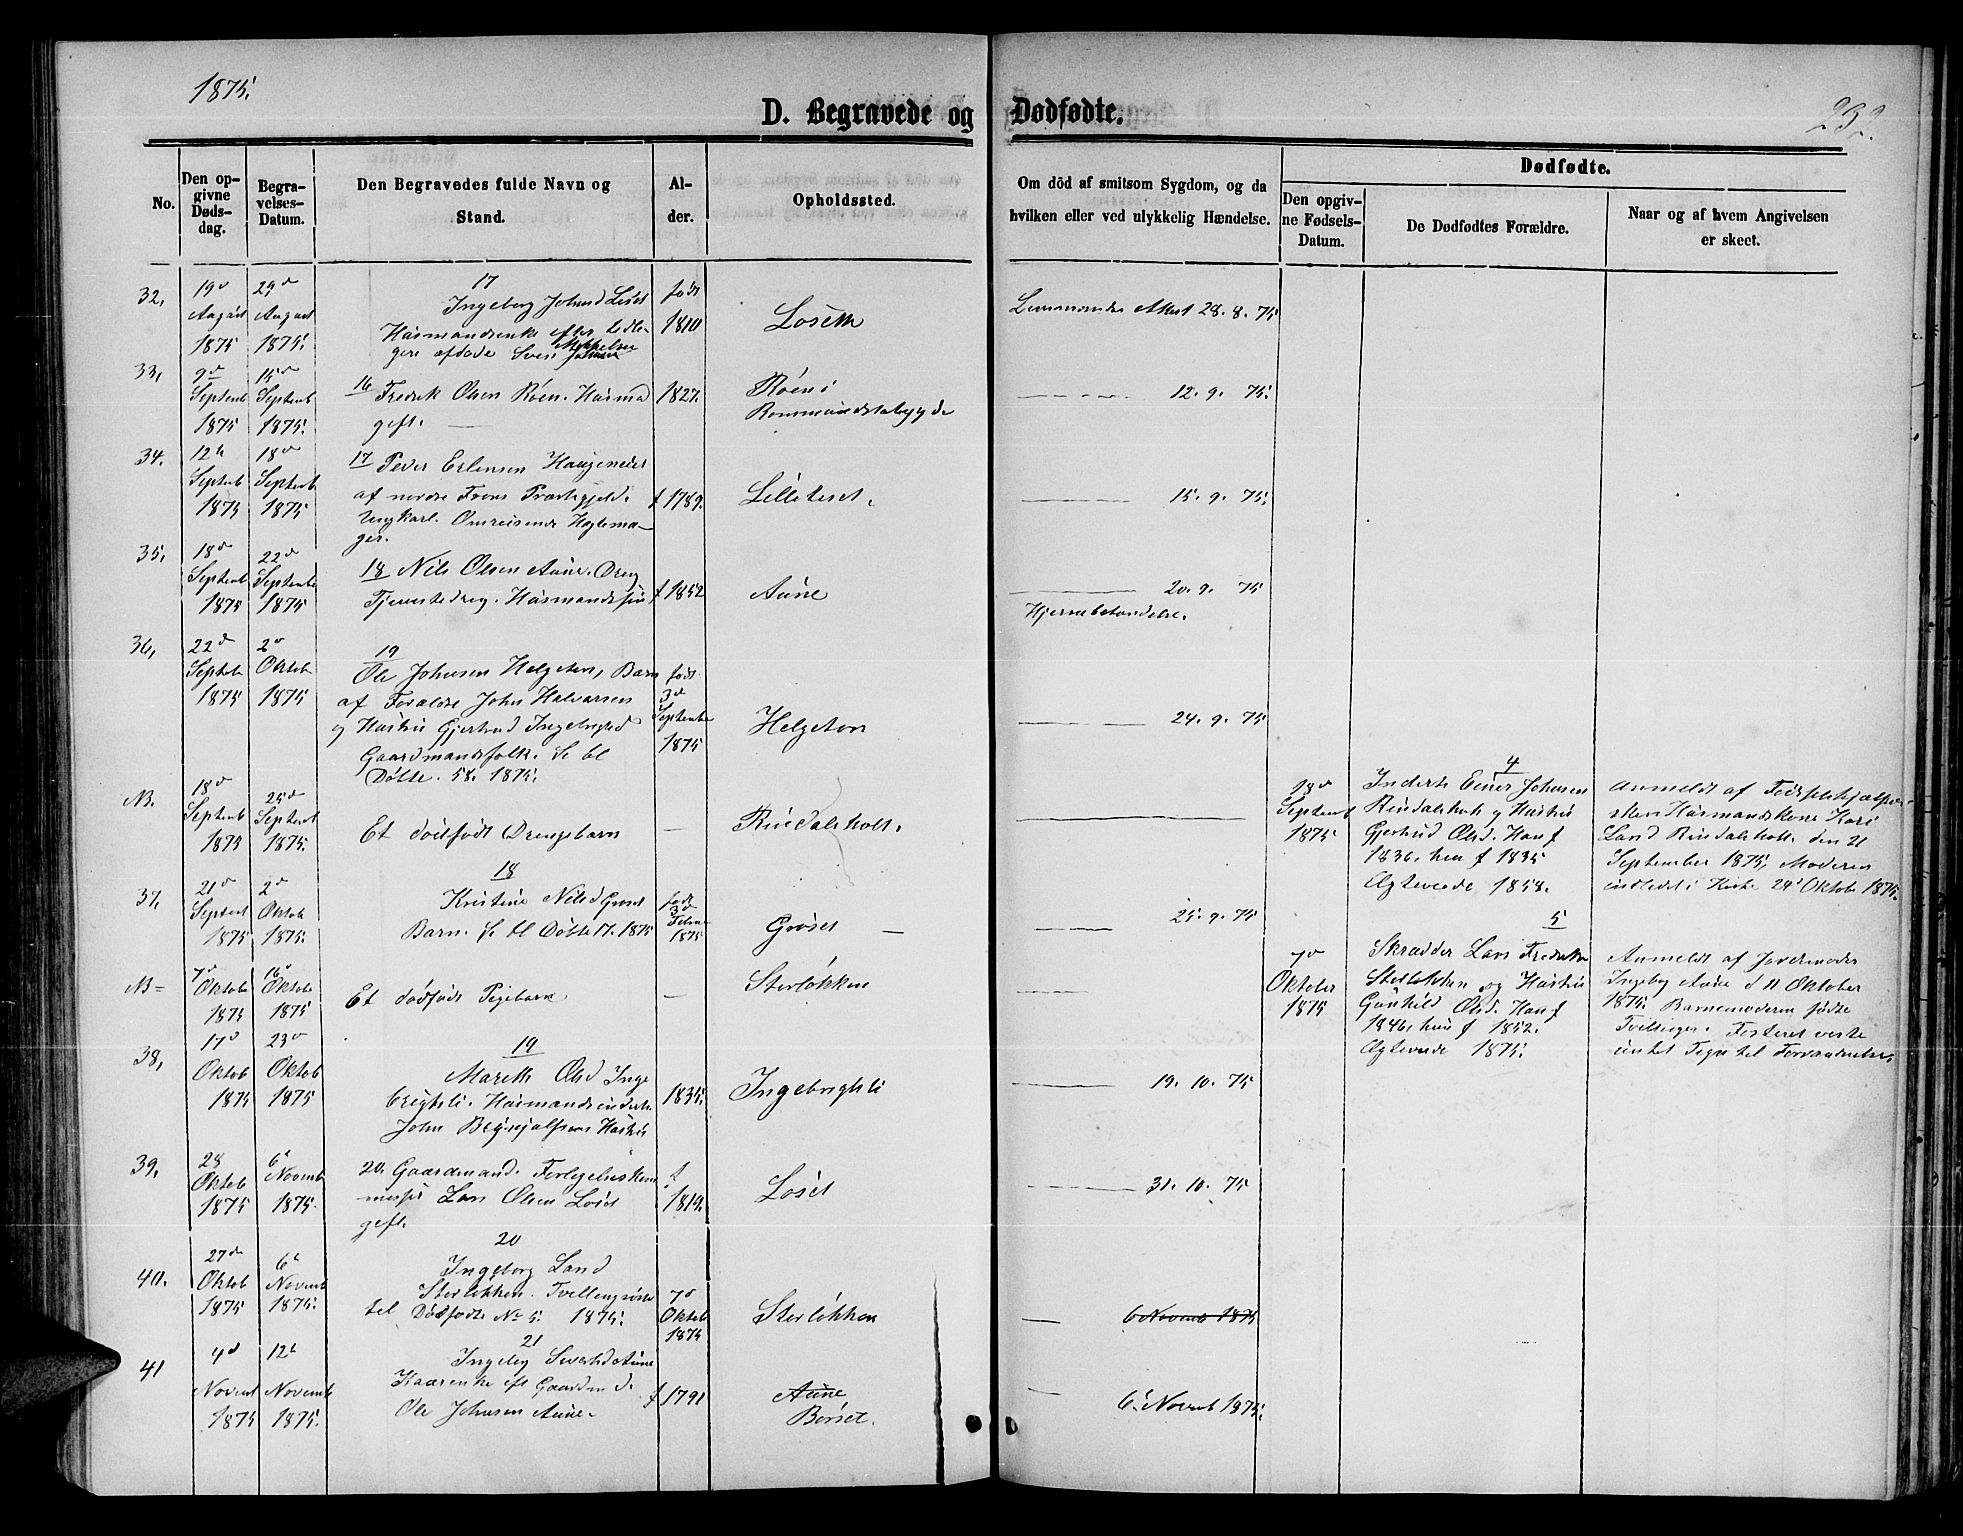 1875.
232.
D. Begravede og Dødfødte.
No.
Den opgivne Døds-dag.
Begravelses-Datum.
Den Begravedes fulde Navn og Stand.
Alder.
Opholdssted.
Om död af smitsom Sygdom, og da hvilken eller ved ulykkelig Hændelse.
Dødfødte.
Den opgivne Fødsels-Datum.
De Dødfødtes Forældre.
Naar og af hvem Angivelsen er skeet.
32,
19d August 1875
29d August 1875.
17
Ingeborg Johnsd Løset
Husmandsenke efter
afdøde Sven
født 1810
Løseth
Lensmandens Attest 28. 8. 75
33,
9d Septemb 1875
15d Septemb 1875.
16 Fredrik Olsen Röen. Husmd
gift.
1827.
Röen i
— — — 12. 9. 75.
34.
12te Septemb 1875
18d Septemb 1875
17 Peder Erlensen Haugeneier
af nordre Frons Præstegjeld.
Ungkarl. Omreisende Hegtema-
ger.
f 1789.
Lilleløset.
— 15. 9. 75.
35,
18d Septemb 1875
22d Septembr 1875
18 Nils Olsen Aune. Dreng
Tjenestedreng. Husmandssön
f 1852
Aune
— 20. 9. 75
Hjernebetændelse.
36,
22d Septeb 1875
2d Oktob 1875
19
Ole Johnsen Helgeton, Barn
af Forældre John Halvorsen
og Hustru Gjertrud Ingebrigtsd
Gaardmandsfolk. Se bl
Døbte. 58. 1875.
født 3d Septembr 1875
Helgeton
— 24. 9. 75
NB.
18d Septemb 1875
25d Septemb 1875.
Et dödfødt Drengebarn
—
Rindalsholt.
18d Septemb 1875
4
Inderst Einer Johnsen
Rindalsholt og Hustru
Gjertrud Olsd. Han f
1836, hun f 1835
Ægteviede 1858.
Anmeldt af
Husmandskone Kari
Larsd Rindalsholt den 21
September 1875, Moderen
indledet i Kirke 24d Oktob 1875.
37,
21d Septemb 1875
2d Oktob 1875.
18
Kristine Nilsd Grøset
Barn. Se bl Døbte 17. 1875
født 3d Febru 1875
Grøset —
— 25. 9. 75
NB=
7d Oktob 1875
16d Oktob 1875
Et dödfødt Pigebarn
—
Storløkken
7d Oktober 1875
5
Skrædder Lars Fredriks
Storløkken og Hustru
Gunhild Olsd. Han f
1846, hun f 1852.
Ægteviede 1875.
Anmeldt af Jordemoder
Ingebg Aune d 11 Oktober
1875. Barnemoderen födte
Tvillinger. Fosteret viste
intet Tegn til Forraadnelse.
38,
17d Oktob 1875
23d Oktob 1875
19
Marith Olsd Inge
brigtsli. Husmandsinderst
John
Hustru
1835.
Ingebrigtsli
— 19. 10. 75
39,
28 Oktob 1875
6d Novemb 1875.
20. Gaardmand. Forligelseskom
missær Lars Olsen Løset
gift.
f 1819.
Løset
— 31. 10. 75
40.
27de Oktob 1875
6d Novemb 1875.
20
Ingeborg Larsd
Storløkken. Tvillingsøster
til Dödfødte No 5. 1875.
7d Oktob 1875
Storløkken
— 6 Novemb 1875
41
4d Novemb 1875
12te Novemb 1875.
21
Ingebg Sivertsd Aune
Kaarenke eft Gaardmd
Ole Johnsen Aune.
f 1791
Aune
Börset.
— 6d Novemb 1875.